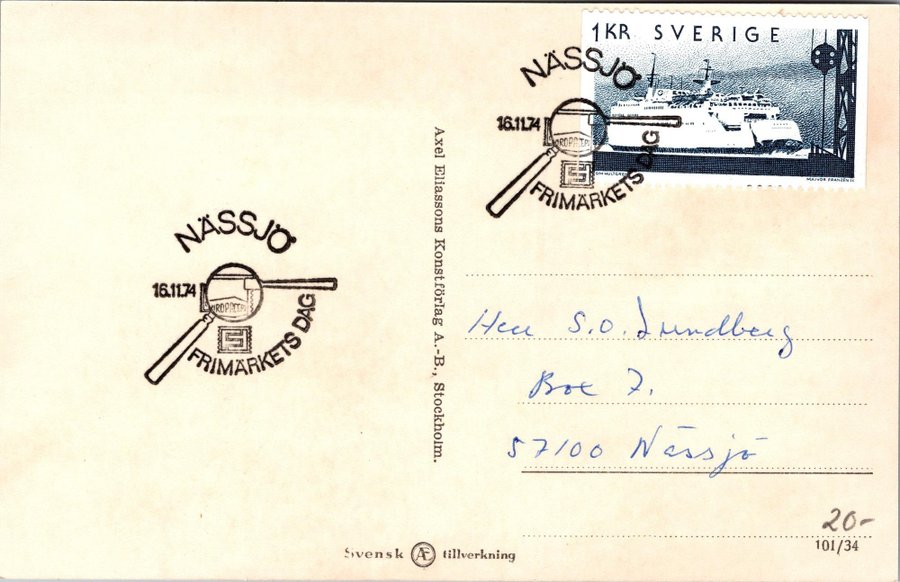 1 KR SVERIGE
MAJVOR FRANZÉN SC
NÄSSJÖ
16.11.74
FRIMÄRKETS DAG
NÄSSJÖ
16.11.74
FRIMÄRKETS DAG
Axel Eliassons Konstförlag A.-B., Stockholm.
Herr S.O. Lundberg
Box 7.
57100 Nässjö
20-
101/34
Svensk Æ tillverkning